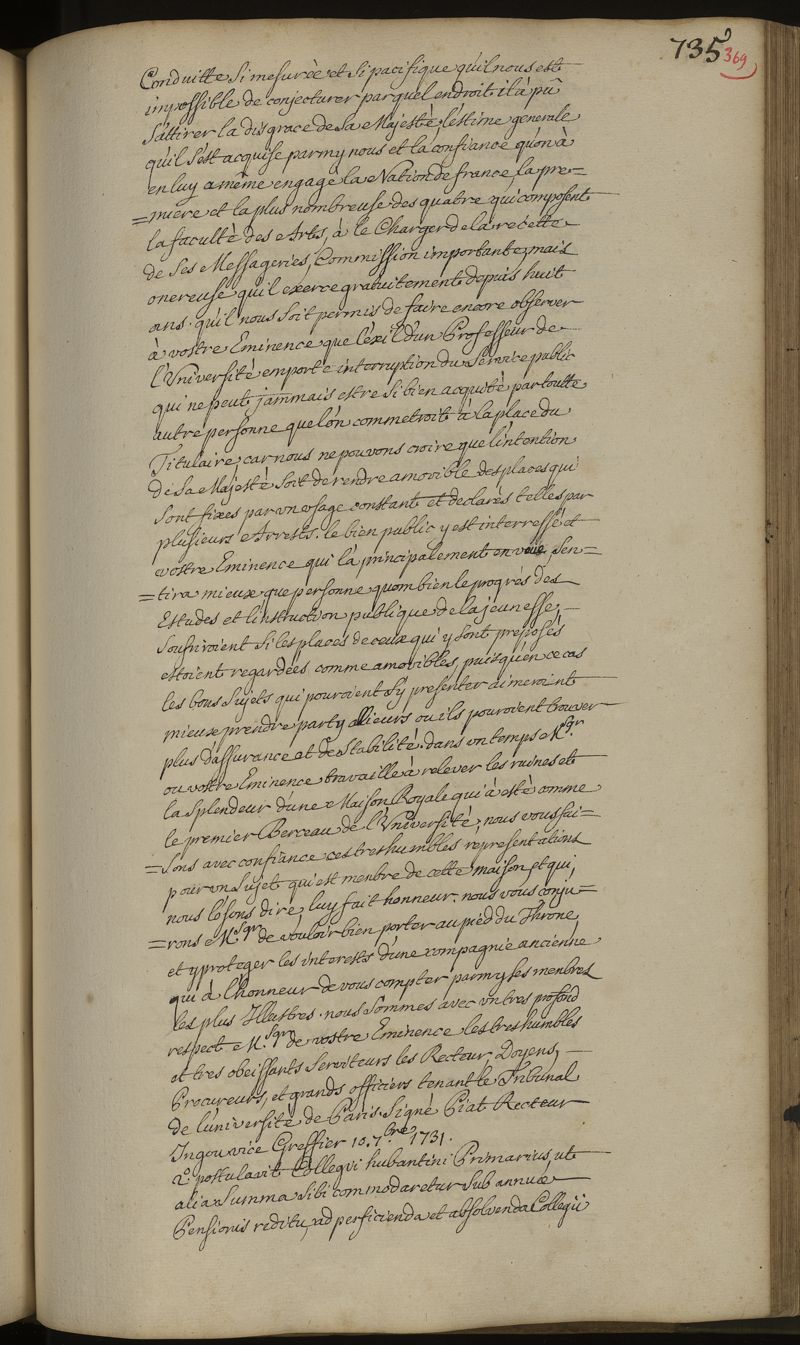 735
369
Conduitte si mesurée et si pacifique qu'il nous est
impossible de conjecturer par quel endroit il à pû
s'attirer la disgrace de sa Majesté, l'éstime generale
qu'il s'est acquise parmy nous et la confiance qu'on à
en luy a même engagé la Nation de france, la pre=
=miere et la plus nombreuse des quatre qui composent
la faculté des Arts, à le Charger de la recette
de ses Messageries, Commission importante, mais
onereuse qu'il exerce gratuitement depuis huit
ans. qu'il nous soit permis de faire encore observer
à vostre Eminence que l'éxil d'un Professeur de
l'Université emporte interruption du service public
qui ne peut jammais estre si bien acquité par toutte
autre personne que l'on commetroit à la place du
Titulaire, car nous ne pouvons croire que l'intention
de sa Majesté soit de rendre amovible des places qui
sont fixes par un usage constant et declarés telles par
plusieurs Arrests. le bien public y est interressé et
vostre Eminence qui l'à principalement en veüe, sen=
=tira mieux que personne quombien le progrés des
Estudes et l'instruction publique de la jeunesse,
soufriroient si les places de ceux qui y sont preposés
estoient regardées comme amovibles, puisqu'en ce cas
les bons sujets qui pouroient s'y presenter aimeroint
mieux prendre party allieurs ou ils pouroient trouver
plus d'assurance et de stabilité. dans un temps M.sgr
ou vostre Eminence travaille à relever les ruines et
la splendeur d'une Maison Royale qui à esté comme
le premier Berceau de l'Université, nous vous fai=
=sons avec confiance ces tres humbles representations
pour un sujet qui est menbre de cette maison et qui,
nous l'osons dire, luy fait honneur. nous vous conju=
=rons M.sgr de vouloir bien porter au pied du Throne,
et y proteger les interests d'une compagnie ancienne
qui à l'honneur de vous compter parmy ses menbres
les plus Illustres. nous sommes avec un tres profond
respect M.sgr de vostre Eminence les tres humbles
et tres obeissants serviteurs les Recteur, Doyens,
Procureurs, et grands officiers tenant le Tribunal
de l'université de Paris. Signé Piat Recteur
Ingoult vice Greffier 10. 7.bre 1731.
2.° postulavit Collegii hubantini Primarius, ut
alia summa sibi commodaretur sub annuæ
Pensionis reditu, ad perficienda et absolvenda Collegii